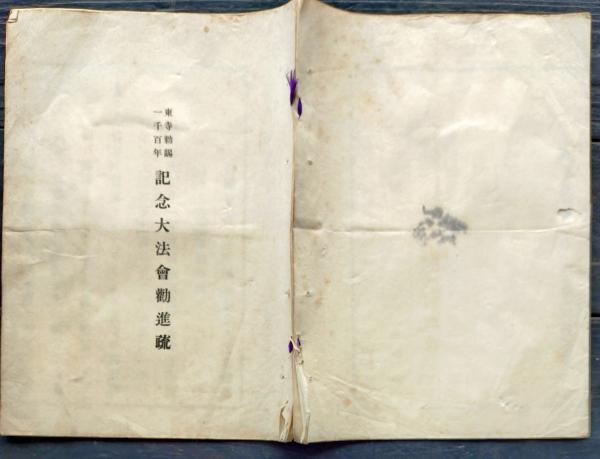 東寺勅賜
一千百年
記念大法會勸進疏